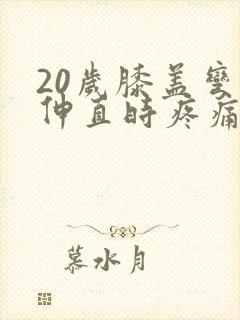 20歲膝蓋彎
伸直時疼痛
慕水月